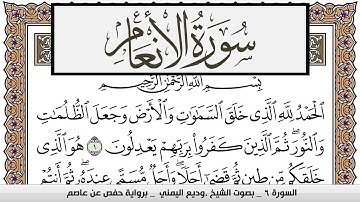 سُورَةُ الأَنْعَامِ
بِسْمِ اللَّهِ الرَّحْمَٰنِ الرَّحِيمِ
الْحَمْدُ لِلَّهِ الَّذِي خَلَقَ السَّمَٰوَٰتِ وَالْأَرْضَ وَجَعَلَ الظُّلُمَٰتِ
وَالنُّورَ ۖ ثُمَّ الَّذِينَ كَفَرُوا بِرَبِّهِمْ يَعْدِلُونَ ١ هُوَ الَّذِي
خَلَقَكُم مِّن طِينٍ ثُمَّ قَضَىٰ أَجَلًا ۖ وَأَجَلٌ مُّسَمًّى عِندَهُ ۖ ثُمَّ أَنتُمْ
السورة ٦ _ بصوت الشيخ .وديع اليمني _ برواية حفص عن عاصم